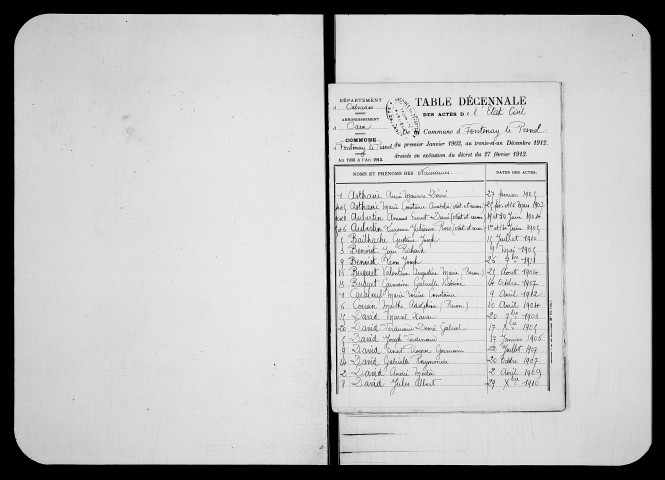 DÉPARTEMENT
d Calvados
ARRONDISSEMENT
d Caen
COMMUNE
d Fontenay le Pesnel
An 1903 à l'An 1913.
TABLE DÉCENNALE
DES ACTES DE l'État Civil
Commune d Fontenay le Pesnel
du premier Janvier 1903, au trente-et-un Décembre 1912,
dressée en exécution du décret du 27 février 1913.
NOMS ET PRÉNOMS DES Naissances. DATES DES ACTES.
Asthasie Maurice Désiré 27 février 1905
Asthasie Marie Constance 1907
Aubertin Ernest Désiré Juin 1904
Aubertin Julienne Rose Juin 1905
5 Bailhache Joseph 11 Juillet 1910
3 Benoist Jean Richard 9 Mai 1905
9 Benoist Léon Joseph 26 7bre 1911
Buquet Valentine Augustine Marie 25 Août 1904
13 Buquet Germaine Gabrielle 14 Octobre 1907
Marie Louise Constance 9 Avril 1912
6 Cousin Marthe 10 Avril 1904
15 David Marcel Xavier 20 7bre 1903
20 David Ferdinand Désiré Gabriel 17 Xbre 1905
David Joseph Ferdinand 17 Janvier 1906
9 David Ernest Germain 22 Juillet 1907
14 David Gabrielle Raymonde 20 Octobre 1907
2 David André Médéric 2 Avril 1909
9 David Jules Albert 29 Xbre 1910